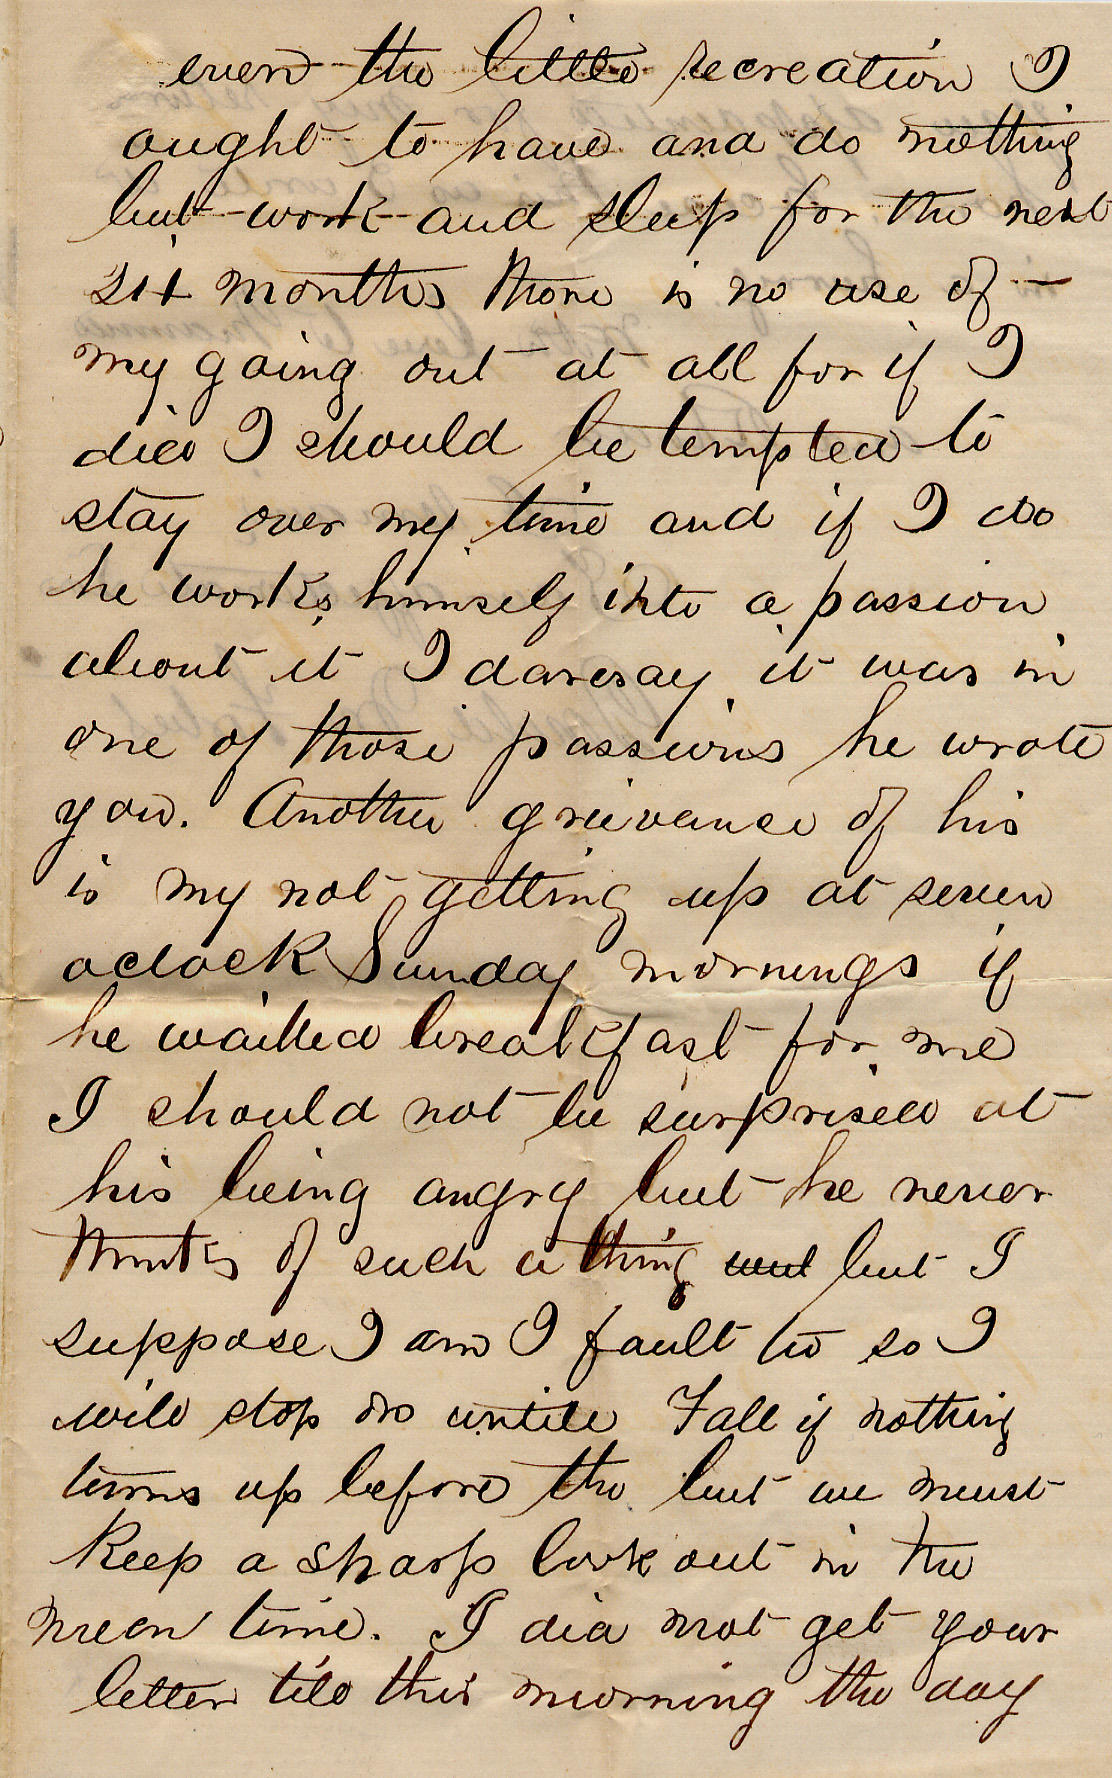 even the little recreation I
ought to have and do nothing
but work and sleep for the next
six months there is no use of
my going out at all for if I
died I should be tempted to
stay over my time and if I do
he works himself into a passion
about it I daresay it was in
one of those passions he wrote
you. Another grievance of his
is my not getting up at seven
oclock Sunday mornings if
he waited breakfast for me
I should not be surprised at
his being angry but he never
thinks of such a thing but I
suppose I am I fault to so I
will stop on untill Fall if nothing
turns up before the but we must
keep a sharp look out in the
mean time. I did not get your
letter till this morning the day